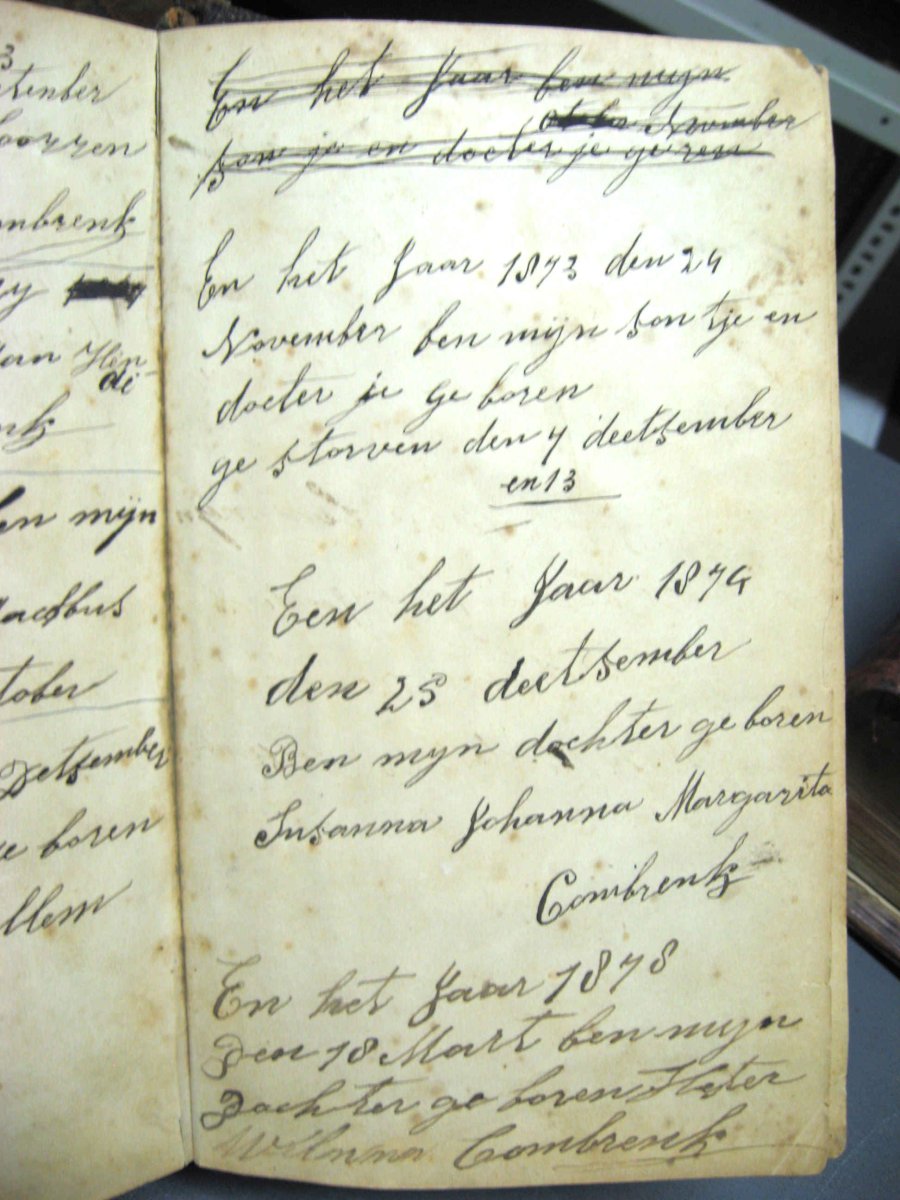 3
tenber
oorren
mbrenk
an Hen
de
nk
en mijn
acobus
tober
Detsember
e boren
llem
En het Jaar ben mijn
November
son je en docter je ge ren
En het Jaar 1873 den 24
November ben mijn son tje en
docter je ge boren
ge storven den 4 deetsember
en 13
Een het Jaar 1874
den 23 deetsember
Ben mijn dochter ge boren
Susanna Johanna Margarita
Combrenk
En het Jaar 1878
Den 18 Mart ben mijn
Dochter ge boren Hester
Combrenk